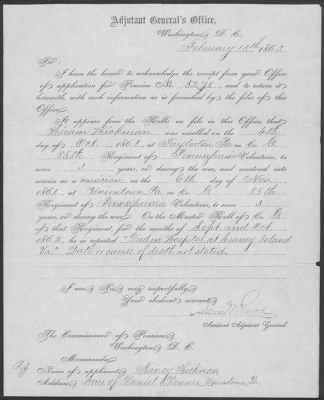 Adjutant General's Office,
Washington, D. C.
February 13th 1863
Sir:
I have the honor to acknowledge the receipt from your Office
of application for Pension No. 5275, and to return it
herewith, with such information as is furnished by the files of this
Office.
It appears from the Rolls on file in this Office, that
Hiram Hickman was enrolled on the 4th
day of Oct., 1861, at Pa in Co. G
85th Regiment of Pennsylvania Volunteers, to
serve 3 years, or during the war, and mustered into
service as a musician on the 6th day of Nov.
1861, at Uniontown Pa, in Co. G 85th
Regiment of Pennsylvania Volunteers, to serve 3
years, or during the war. On the Muster Roll of Co. G
of that Regiment, for the months of Sept. and Oct.
1862, he is reported "Died in Hospital at Craney Island
Va." Date or cause of death not stated.
I am, Sir, very respectfully,
Your obedient servant,
Assistant Adjutant General.
The Commissioner of Pensions,
Washington, D. C.
Memoranda:
Name of applicant, Hickman
Address, Care of Daniel Uniontown, Pa